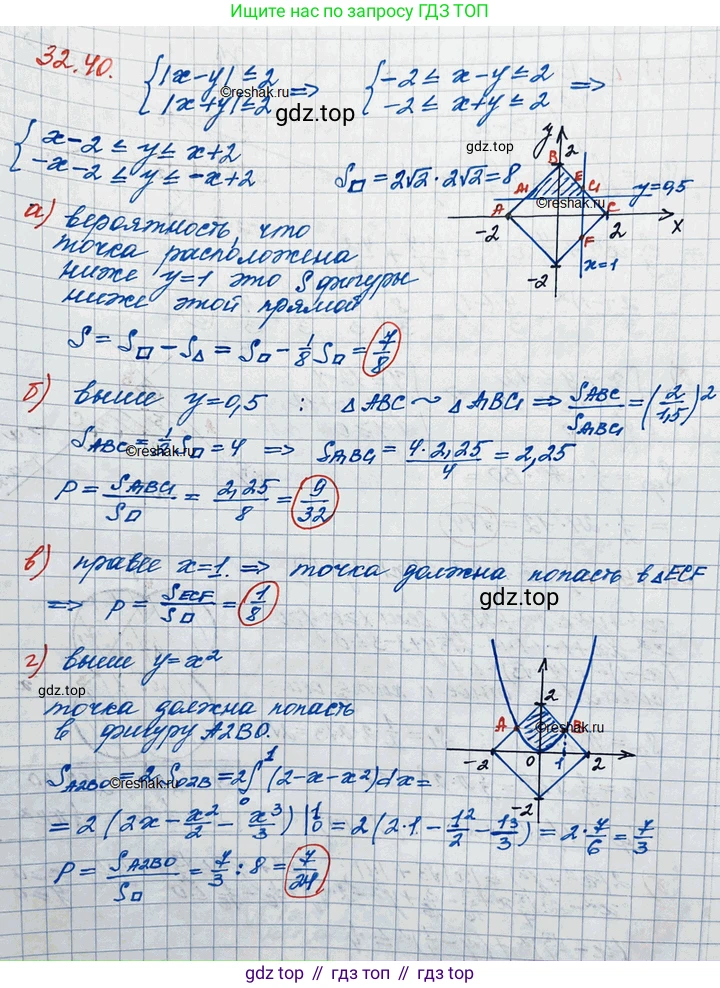 Ищите ответ по запросу ГДЗ ТОП
32.40. { |x-y| ≤ 2 ⇒ { -2 ≤ x-y ≤ 2 ⇒
|x+y| ≤ 2 -2 ≤ x+y ≤ 2
©reshak.ru
gdz.top
{ x-2 ≤ y ≤ x+2
-x-2 ≤ y ≤ -x+2 S□ = 2√2 · 2√2 = 8
y B 2 E A1 C1 y=0,5
©reshak.ru
A C -2 2 x F
-2 x=1
а) вероятность, что
точка расположена
ниже y=1 это S фигуры
ниже этой прямой
S = S□ - S△ = S□ - 1/8 S□ = 7/8
б) выше y=0,5 : △ABC ~ △A1BC1 ⇒ SABC/SA1BC1 = (2/1,5)²
SABC = 1/2 S□ = 4 ⇒ SA1BC1 = 4·2,25/4 = 2,25
©reshak.ru
P = SA1BC1/S□ = 2,25/8 = 9/32
в) правее x=1. ⇒ точка должна попасть в △ECF
⇒ P = SECF/S□ = 1/8
gdz.top
г) выше y=x²
gdz.top
точка должна попасть
в фигуру A2BO.
A 2 B
-2 0 1 2
-2
SA2BO = 2 SO2B = 2∫₀¹ (2-x-x²)dx =
©reshak.ru
= 2 (2x - x²/2 - x³/3) |₀¹ = 2(2·1 - 1²/2 - 1³/3) = 2·7/6 = 7/3
P = SA2BO/S□ = 7/3 : 8 = 7/24
gdz.top // гдз топ // gdz.top